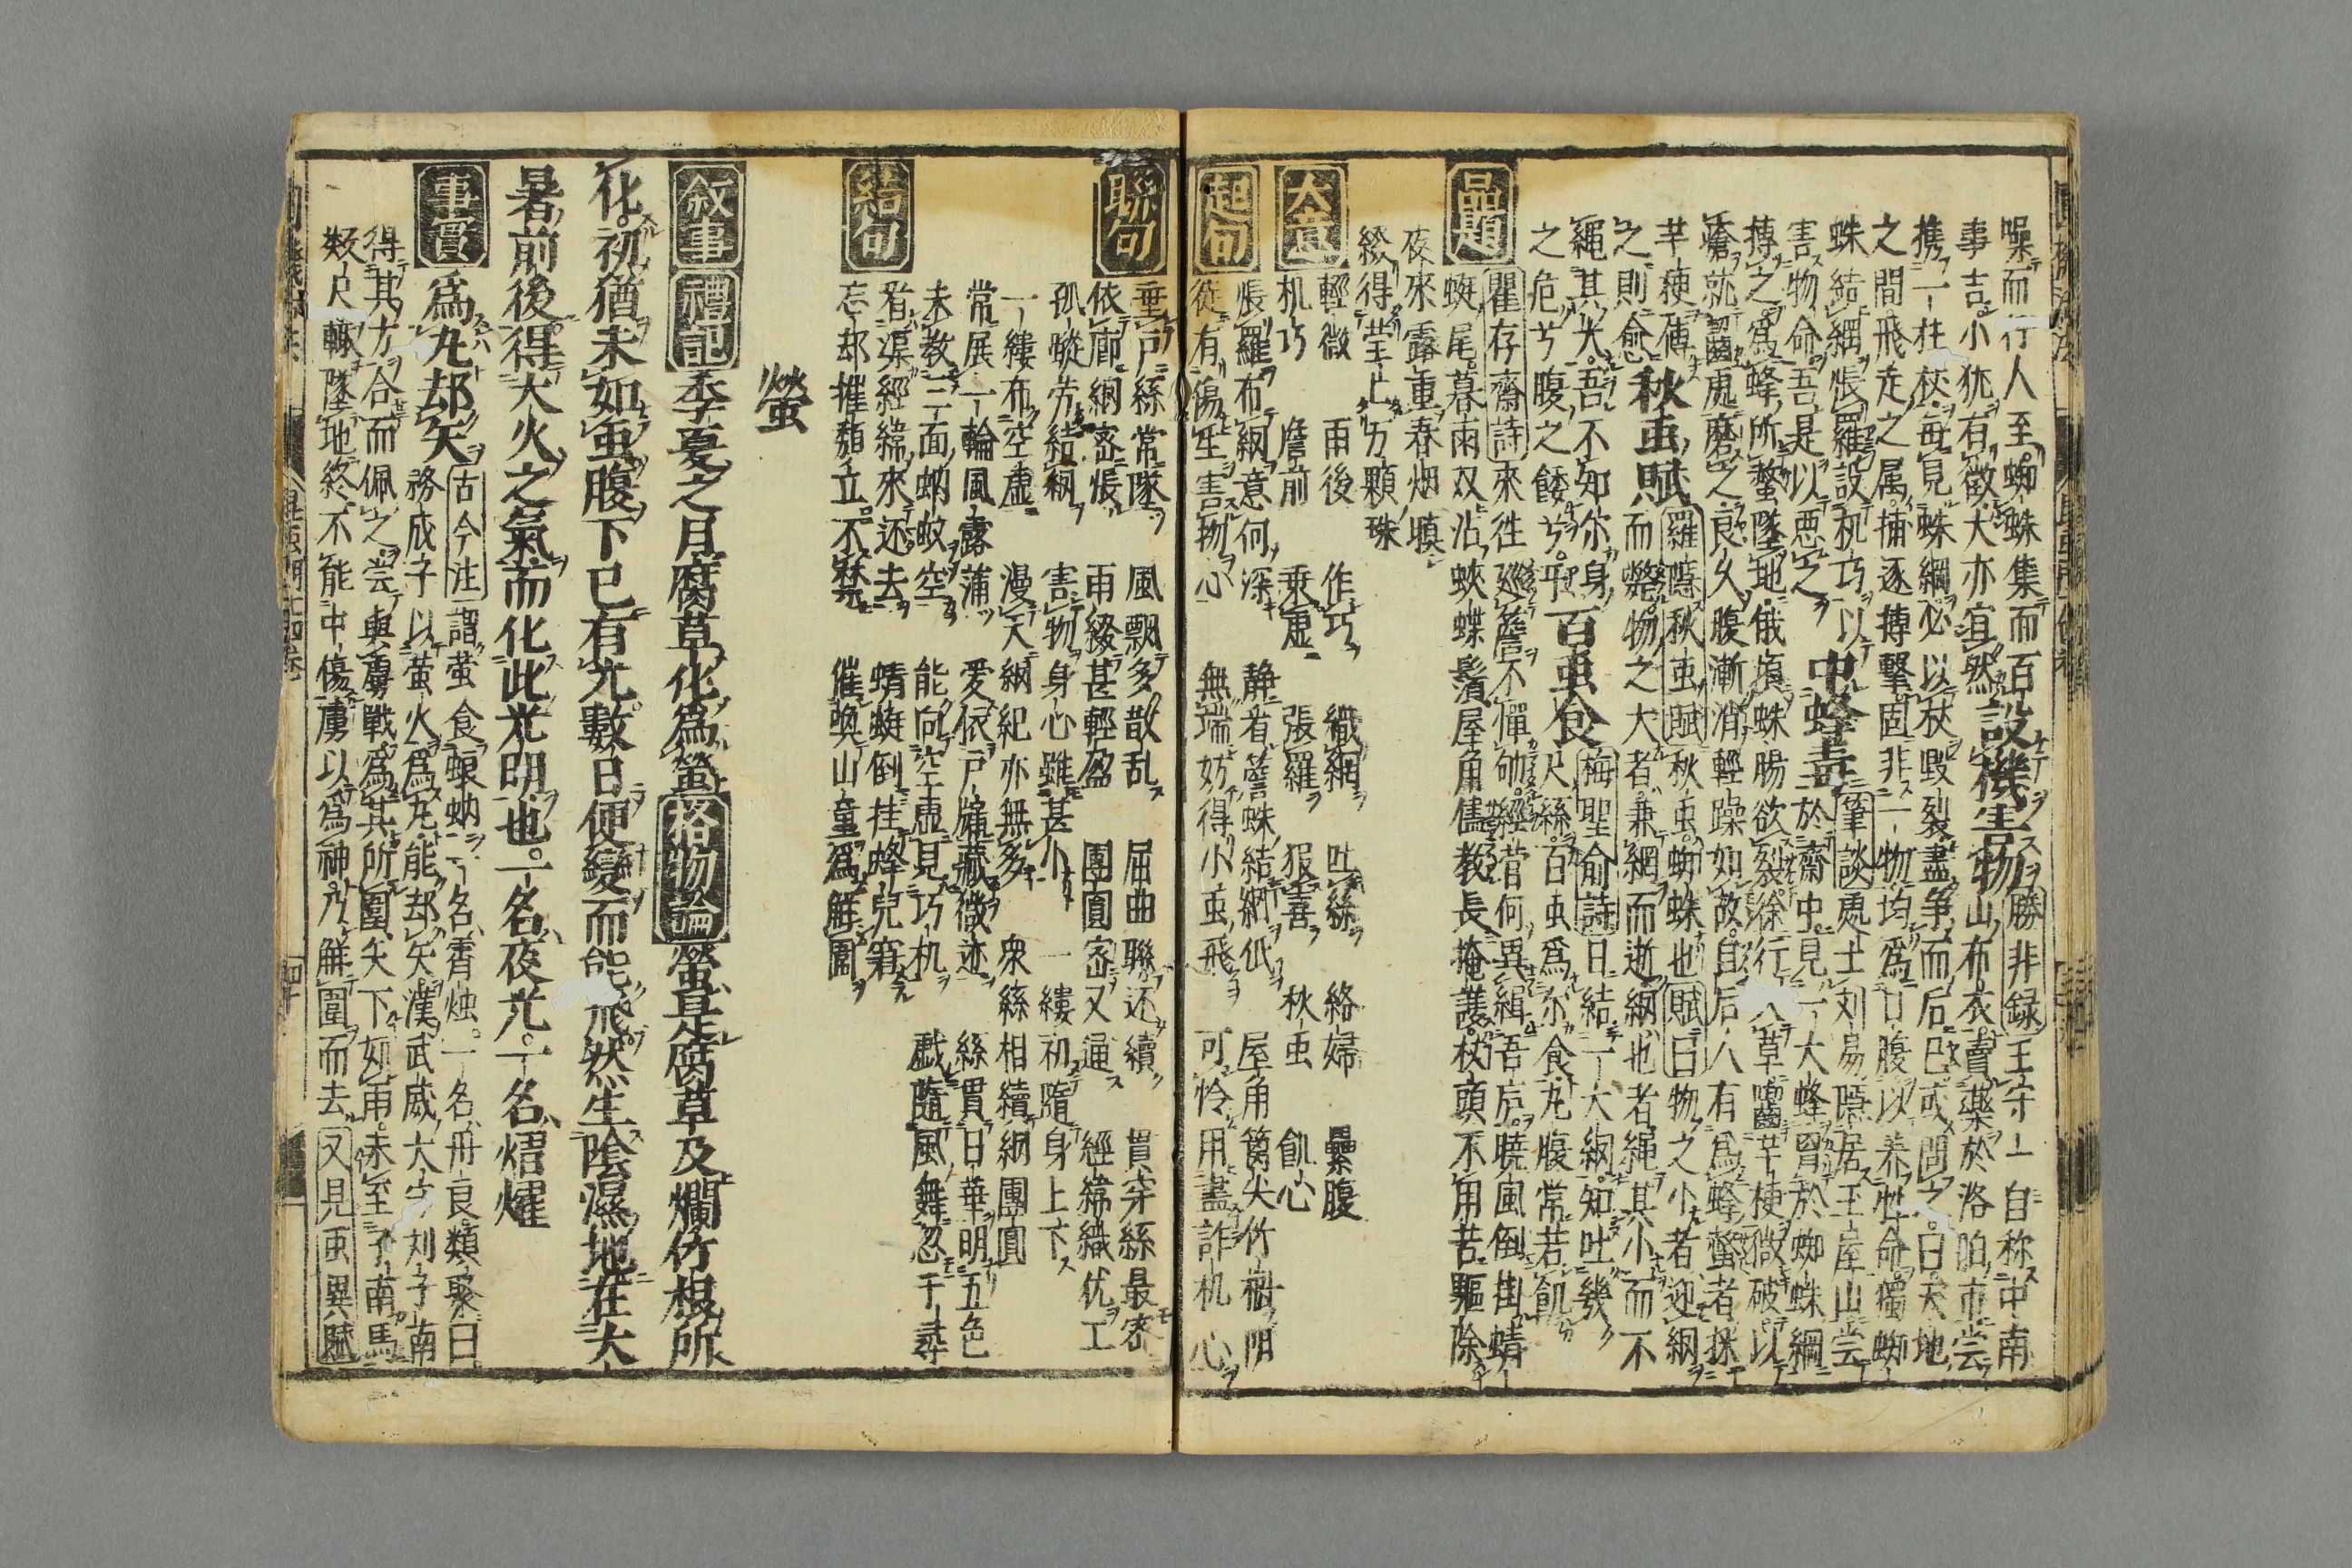 噪而行人至蜘蛛集而百
事吉小犹有徵大亦宜然設機害物勝非録王守一自称中南
携一柱杖每見蛛網必以杖毀裂盡争而后已或問之曰天地
之間飛走之属捕逐搏擊固非一物均爲口腹以养性命獨蜘
蛛結網悵羅設机巧以
害物命吾是以惡之中蜂毒筆談處士刘易隠居王屋山尝
於齋中見一大蜂罥於蜘蛛網
搏之爲蜂所螫墜地俄頃蛛腸欲裂徐行入草嚙芋梗微破以
瘡就嚙處磨之良久腹漸消輕躁如故自后人有爲蜂螫者採
芋梗傅
之則愈秋虫賦羅隠秋虫賦秋虫蜘蛛也賦曰物之小者迎網
而斃物之大者兼網而逝網也者繩其小而不
繩其大吾不知尔身
之危兮腹之餧兮乎百虫食梅聖俞詩日結一大網知吐幾
尺絲百虫爲尔食九腹常若飢
瞿存齋詩來徃巡簷不憚劬經营何異緝吾庐曉風倒掛蜻
蜓尾暮雨双沾蛺蝶鬚屋角儘教長掩護杖頭不用苦驅除
夜來露重春烟暝
綴得莹上万顆珠
品題
輕微 雨後 作巧 織網 吐絲 絡婦 纍腹
机巧 詹前 乗虚 張羅 狠害 秋虫 飢心
大意
悵羅布網意何深 静看簷蛛結網低 屋角篱尖竹樹阴
從有傷生害物心 無端妨得小虫飛 可怜用盡詐机心
起句
聯句
垂戸絲常墜 風飄多散乱 屈曲聯还續 買穿絲最密
依廊網密悵 雨綴甚輕盈 團圓密又逼 經緯織优工
孤蹤芳結網 害物身心雖甚小 一縷初隨身上下
一縷布空虚 漫天網紀亦無多 衆絲相續網團圓
常展一輪風露蒲 爱依戸牖藏微迹 絲貫日華明五色
未教三面蚋蚊空 能向空虚見巧机 戯隨風舞忽千尋
結句
看渠經緯來还去 蜻蜓倒挂蜂兒窘
忘却摧頽立不禁 催喚山童爲觧圍
螢
叙事 禮記季夏之月腐草化爲螢格物論螢是腐草及爛竹根所
化初猶未如虫腹下已有光數日便變而能飛然生陰濕地在大
暑前後得大火之氣而化此光明也一名夜光一名熠燿
事實 爲丸却矢古今注謂萤食蜧蚋一名霄烛一名丹良類聚曰
務成子以萤火爲丸能却矢漢武威大守刘子南
得其方合而佩之尝與虜戰爲其所圍矢下如雨未至子南馬
数尺輙墜地終不能中傷虜以爲神乃觧圍而去又見虫異賦